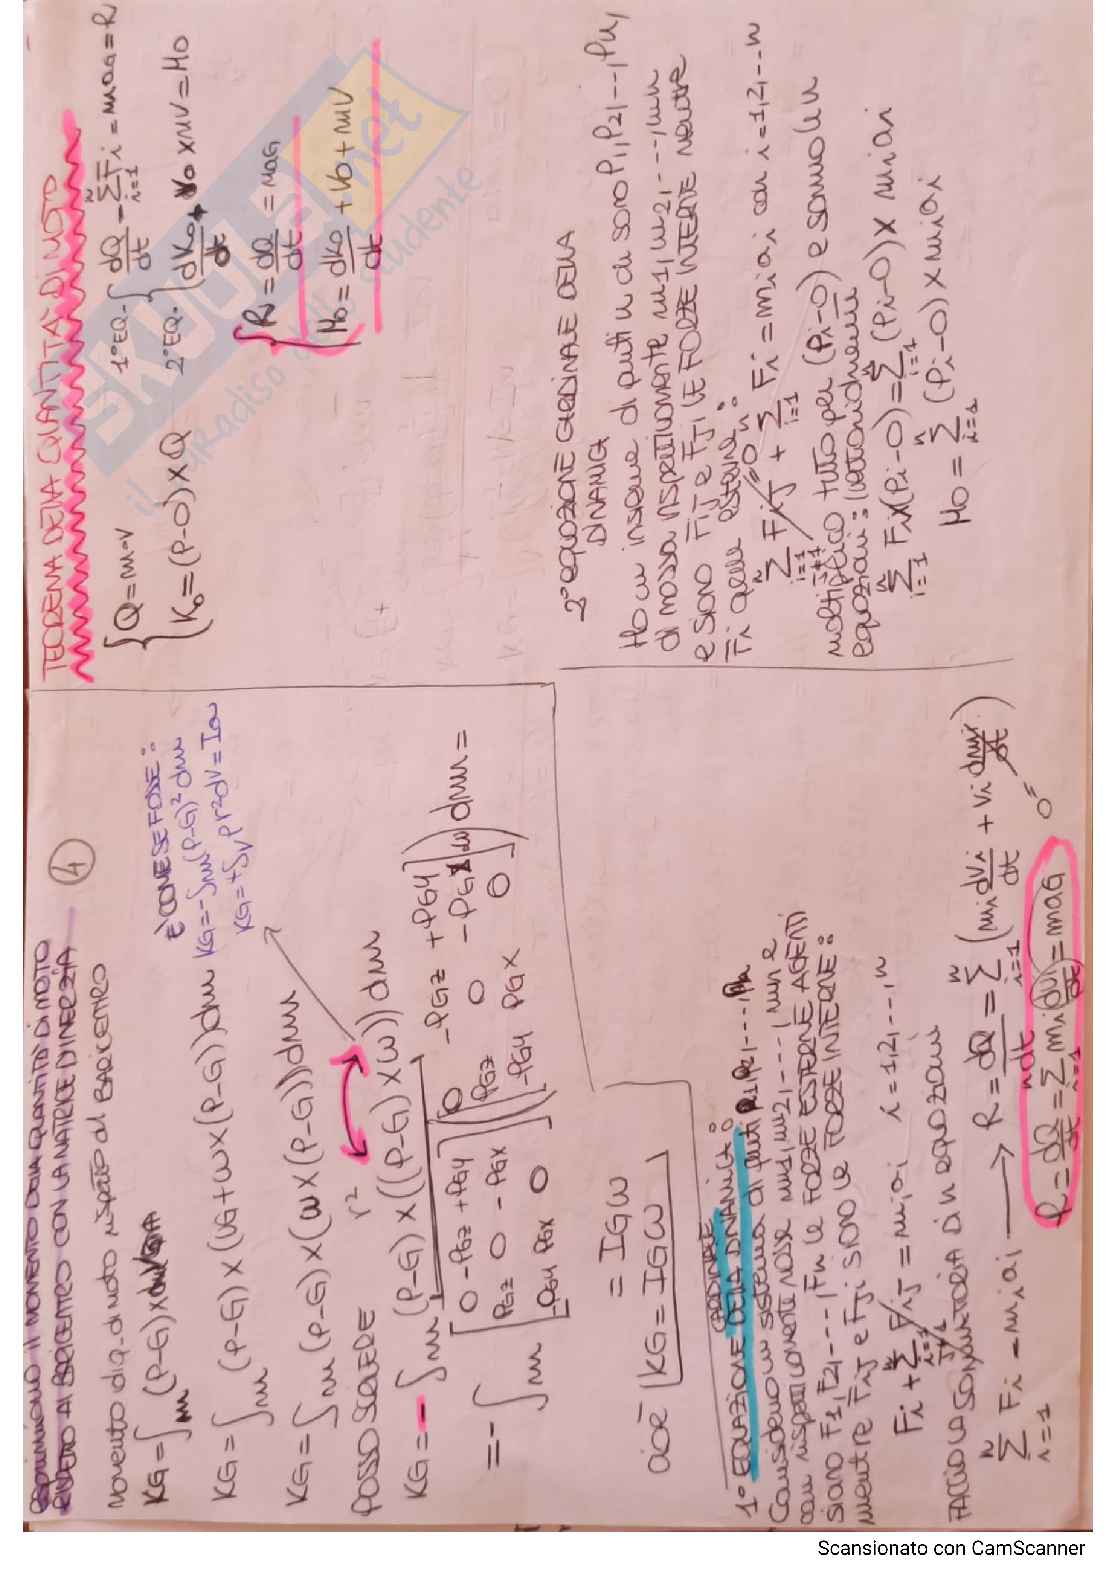 ESPRIMIAMO IL MOMENTO DELLA QUANTITÀ DI MOTO
RISPETTO AL BARICENTRO CON LA MATRICE DI INERZIA
4
Momento di q. di moto rispetto al BARICENTRO
KG = ∫m (P-G) x
KG = ∫m (P-G) x (VG + ω x (P-G)) dm
KG = ∫m (P-G) x (ω x (P-G)) dm
POSSO SCRIVERE r²
KG = - ∫m (P-G) x ((P-G) x ω)) dm
È COME SE FOSSE:
KG = - ∫m (P-G)² dm
KG = + ∫v ρ r² dV = Iω
= - ∫m [0 -PGz +PGy
PGz 0 -PGx
-PGy PGx 0] [0 -PGz +PGy
PGz 0 -PGx
-PGy PGx 0] ω dm =
= IGω
cioè KG = IGω
1° EQUAZIONE CARDINALE DELLA DINAMICA:
Consideriamo un sistema di punti P1, P2, ... Pn
con rispettivamente masse m1, m2, ..., mn e
siano F1, F2, ..., Fn le FORZE ESTERNE AGENTI
mentre Fij e Fji siano le FORZE INTERNE:
Fi + n∑i=1 j≠1 Fij = mi ai i = 1, 2, ..., n
FACCIO LA SOMMATORIA DI n equazioni
n∑i=1 Fi = mi ai → R = dQ/dt = n∑i=1 (mi dVi/dt + Vi dmi/dt) =0
R = dQ/dt = n∑i=1 mi dvi/dt = maG
TEOREMA DELLA QUANTITÀ DI MOTO
{Q = m·v
{Ko = (P-O) x Q
1° EQ. { dQ/dt = n∑i=1 Fi = maG = R
2° EQ. { dKo/dt + Vo x mV = Mo
{R = dQ/dt = maG
{Mo = dKo/dt + Vo + mV
2° equazione CARDINALE DELLA
DINAMICA
Ho un insieme di punti n di sono P1, P2, ..., Pn,
di massa rispettivamente m1, m2, ..., mn
e siano Fij e Fji LE FORZE INTERNE mentre
Fi quelle esterne:
n∑i=1 j≠1 Fij =0 + n∑i=1 Fi = mi ai con i = 1, 2, ... n
moltiplico tutto per (Pi-O) e sommo le n
equazioni: (vettorialmente)
n∑i=1 Fi x (Pi-O) = n∑i=1 (Pi-O) x mi ai
Mo = n∑i=1 (Pi-O) x mi ai
SKUOLA.net
il paradiso dello studente
Scansionato con CamScanner